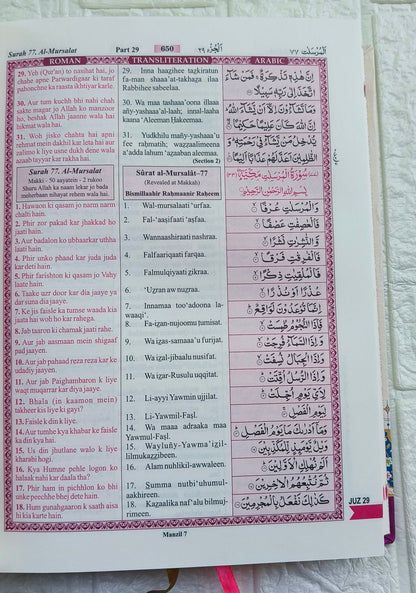 Surah 77. Al-Mursalat
Part 29
650
٢٩ اَلْجُزْء
اَلْمُرْسَلٰت ٧٧
ROMAN
TRANSLITERATION
ARABIC
29. Yeh (Qur'an) to nasihat hai, jo
chahe apne Parwardigaar ki taraf
pahonchne ka raasta ikhtiyar karle.
30. Aur tum kuchh bhi nahi chah
sakte magar jo Allah ko manzoor
ho, beshak Allah jaanne wala hai
hikmat wala hai.
31. Woh jisko chahta hai apni
rehmat mein dakhil kar leta hai aur
zalimo k liye usne dukh dene wala
azaab tayyar kar rakha hai.
Surah 77. Al-Mursalat
Makki - 50 aayatein - 2 rukoo
Shuru Allah ka naam lekar jo bada
meherbaan nihayat rehem wala hai.
1. Hawaon ki qasam jo narm narm
chalti hain.
2. Phir zor pakad kar jhakkad ho
jaati hain.
3. Aur badalon ko ubhaarkar uthha
laati hain.
4. Phir unko phaad kar juda juda
kar deti hain.
5. Phir farishton ki qasam jo Vahy
laate hain.
6. Taake uzr door kar dia jaaye ya
dar suna dia jaaye.
7. Ke jis faisle ka tumse waada kia
jaata hai woh ho kar rahega.
8. Jab taaron ki chamak jaati rahe.
9. Aur jab aasmaan mein shigaaf
pad jaayen.
10. Aur jab pahaad reza reza kar ke
udadiy jaayen.
11. Aur jab Paighambaron k liye
waqt muqarrar kar diya jaaye.
12. Bhala (in kaamon mein)
takheer kis liye ki gayi?
13. Faisle k din k liye.
14. Aur tumhe kya khabar ke faisle
ka din kya hai.
15. Us din jhutlane walo k liye
kharabi hogi.
16. Kya Humne pehle logon ko
halaak nahi kar daala tha?
17. Phir ham in pichhlon ko bhi
unke peechhe bhej dete hain.
18. Hum gunahgaaron k saath aisa
hi kia karte hain.
29. Inna haagihee tazkiratun
fa-man shaaa'at-takhaga ilaa
Rabbihee sabeelaa.
30. Wa maa tashaaa'oona illaaa
añy-yashaaa'al-laah; innal-laaha
kaana 'Aleeman Ḥakeemaa.
31. Yudkhilu mañy-yashaaa'u
fee raḥmatih; waẓẓaalimeena
a'adda lahum 'aẓaaban aleemaa.
(Section 2)
Sûrat al-Mursalât–77
(Revealed at Makkah)
Bismillaahir Rahmaanir Raheem
1. Wal-mursalaati 'urfaa.
2. Fal-'aaṣifaati 'aṣfaa.
3. Wannaashiraati nashraa.
4. Falfaariqaati farqaa.
5. Falmulqiyaati ẓikraa.
6. 'Uẓran aw nuẓraa.
7. Innamaa too'adoona la-
waaqi'.
8. Fa-iẓan-nujoomu ṭumisat.
9. Wa iẓas-samaaa'u furijat.
10. Wa iẓal-jibaalu nusifat.
11. Wa iẓar-Rusulu uqqitat.
12. Li-ayyi Yawmin ujjilat.
13. Li-Yawmil-Faṣl.
14. Wa maaa adraaka maa
Yawmul-Faṣl.
15. Wayluñy-Yawma'iẓil-
lilmukaẓẓibeen.
16. Alam nuhlikil-awwaleen.
17. Summa nutbi'uhumul-
aakhireen.
18. Kazaalika naf'alu bilmuj-
rimeen.
اِنَّ هٰذِهٖ تَذْكِرَةٌ ۚ فَمَنْ شَآءَ
اتَّخَذَ اِلٰى رَبِّهٖ سَبِيْلًا ۞
وَمَا تَشَآءُوْنَ اِلَّاۤ اَنْ يَّشَآءَ اللّٰهُ ؕ
اِنَّ اللّٰهَ كَانَ عَلِيْمًا حَكِيْمًا ۞
يُّدْخِلُ مَنْ يَّشَآءُ فِيْ رَحْمَتِهٖ ؕ وَ
الظّٰلِمِيْنَ اَعَدَّ لَهُمْ عَذَابًا اَلِيْمًا ۞
بِسْمِ اللّٰهِ الرَّحْمٰنِ الرَّحِيْمِ
وَالْمُرْسَلٰتِ عُرْفًا ۞
فَالْعٰصِفٰتِ عَصْفًا ۞
وَّالنّٰشِرٰتِ نَشْرًا ۞
فَالْفٰرِقٰتِ فَرْقًا ۞
فَالْمُلْقِيٰتِ ذِكْرًا ۞
عُذْرًا اَوْ نُذْرًا ۞
اِنَّمَا تُوْعَدُوْنَ لَوَاقِعٌ ۞
فَاِذَا النُّجُوْمُ طُمِسَتْ ۞
وَاِذَا السَّمَآءُ فُرِجَتْ ۞
وَاِذَا الْجِبَالُ نُسِفَتْ ۞
وَاِذَا الرُّسُلُ اُقِّتَتْ ۞
لِاَيِّ يَوْمٍ اُجِّلَتْ ۞
لِيَوْمِ الْفَصْلِ ۞
وَمَاۤ اَدْرٰىكَ مَا يَوْمُ الْفَصْلِ ۞
وَيْلٌ يَّوْمَئِذٍ لِّلْمُكَذِّبِيْنَ ۞
اَلَمْ نُهْلِكِ الْاَوَّلِيْنَ ۞
ثُمَّ نُتْبِعُهُمُ الْاٰخِرِيْنَ ۞
كَذٰلِكَ نَفْعَلُ بِالْمُجْرِمِيْنَ ۞
JUZ 29
Manzil 7